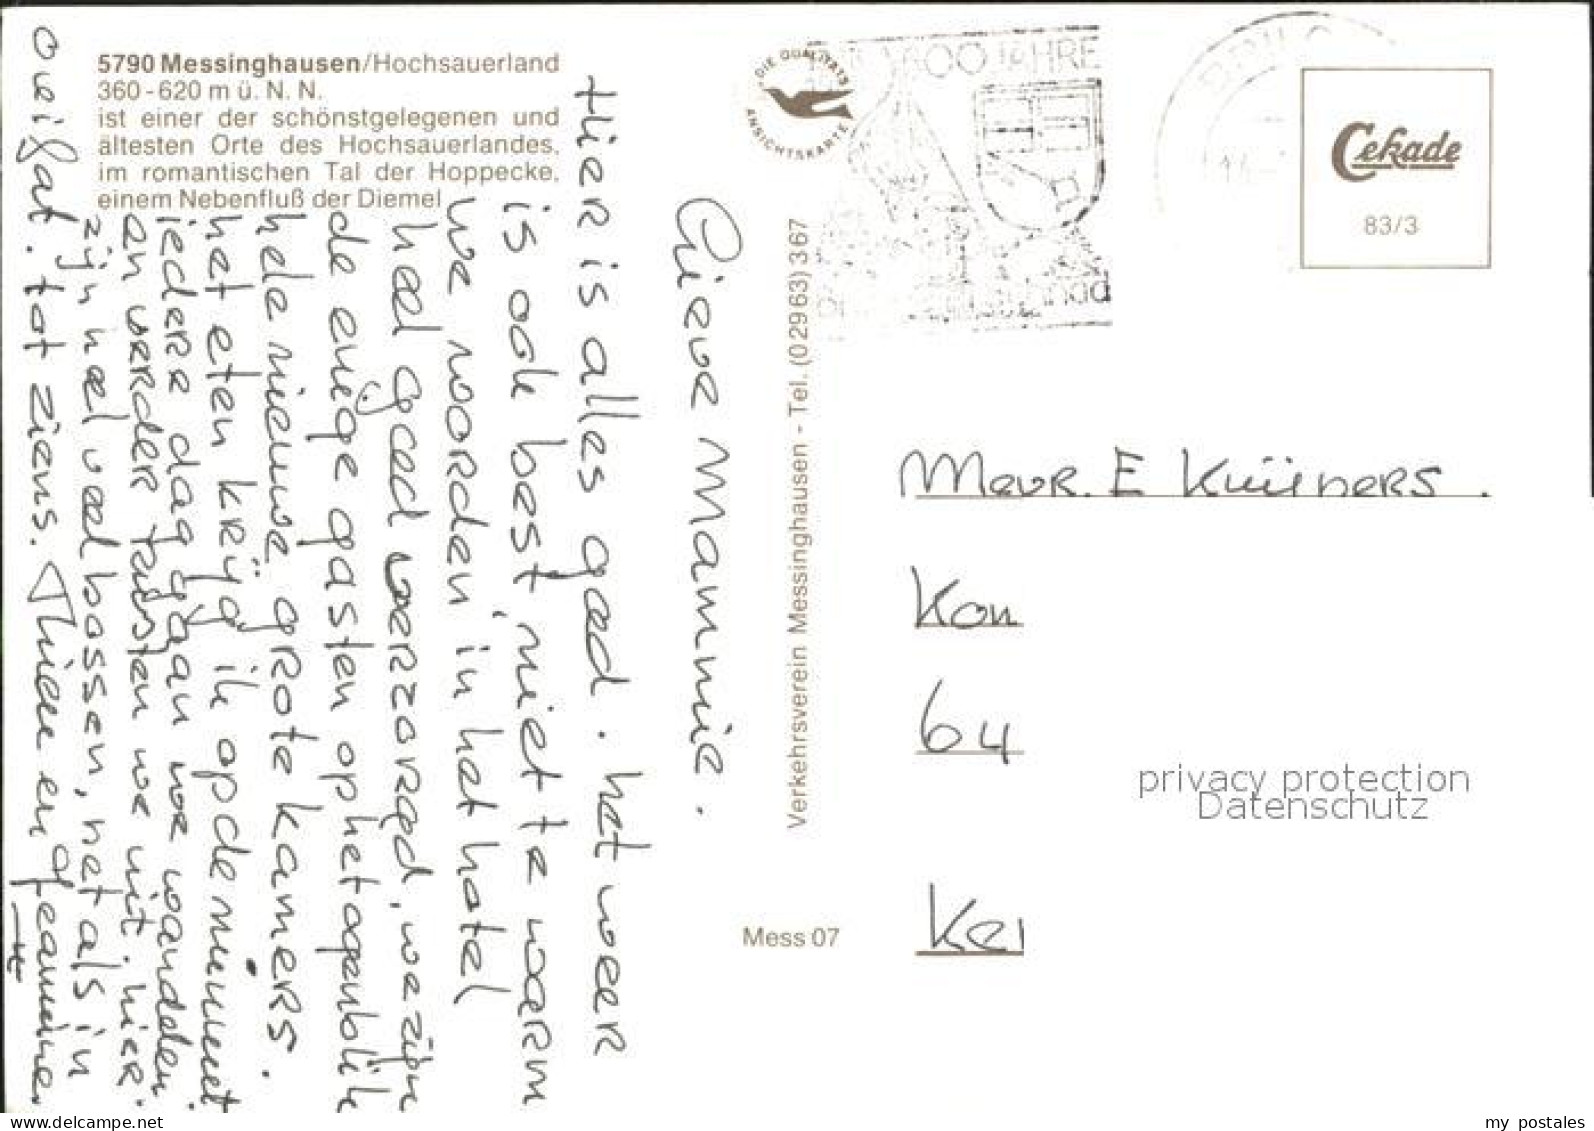 5790 Messinghausen/Hochsauerland
360-620 m ü. N. N.
ist einer der schönstgelegenen und
ältesten Orte des Hochsauerlandes,
im romantischen Tal der Hoppecke,
einem Nebenfluß der Diemel
Lieve Mammie.
Hier is alles goed. het weer
is ook best, niet te warm
we worden in het hotel
heel goed verzorgd, we zijn
de enige gasten op het ogenblik
hele nieuwe grote kamers.
het eten krijg ik op de minuut
iedere dag gaan we wandelen
an verder rusten we uit. hier
zijn heel veel bossen, net als in
tot ziens. Thieu en
DIE QUALITÄTS
ANSICHTSKARTE
JAHRE
Cekade
83/3
Verkehrsverein Messinghausen - Tel. (0 29 63) 3 67
Mess 07
Mevr. E Kuijners.
Kon
64
Kei
privacy protection
Datenschutz
www.delcampe.net
my_postales